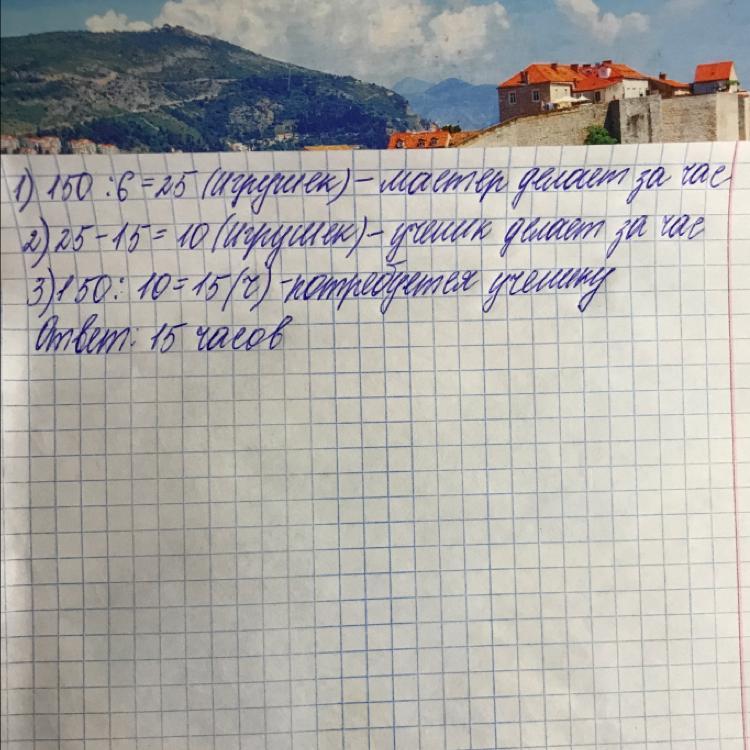 1) 150 : 6 = 25 (игрушек) – мастер делает за час
2) 25 – 15 = 10 (игрушек) – ученик делает за час
3) 150 : 10 = 15 (ч) – потребуется ученику
Ответ: 15 часов